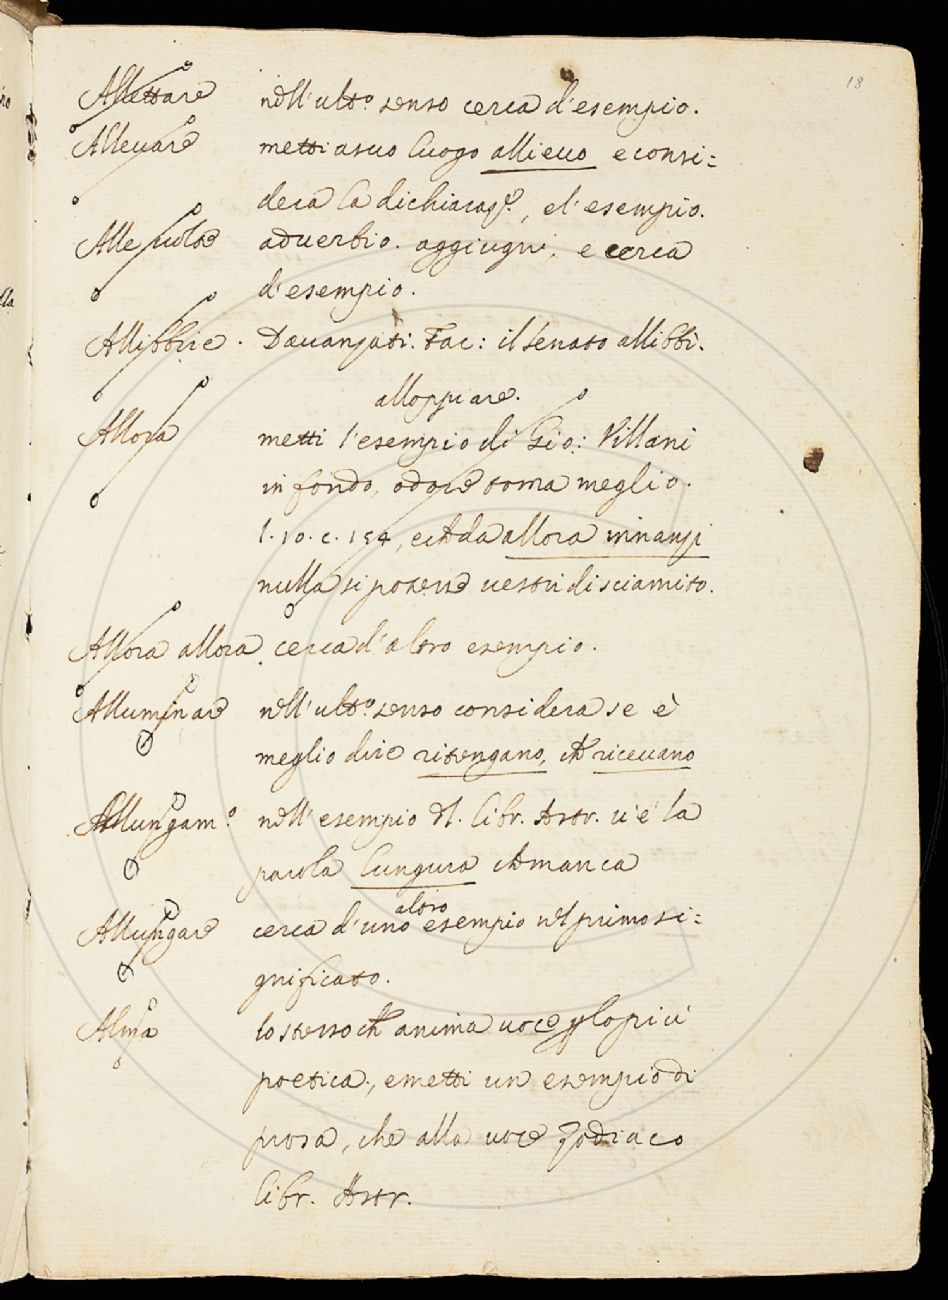 18
Allettare nell'ult.o senso cerca d'esempio.
Allevare metti a suo luogo allievo e consi=
dera la dichiaraz.e, e l'esempio.
Alle volte adverbio. aggiugni, e cerca
d'esempio.
Allibbire. Davanzati. Tac: il senato allibbì.
alloppiare.
Allora metti l'esempio di Gio: Villani
in fondo, ove torna meglio.
l. 10. c. 154, che da allora innanzi
nulla si potesse vestir di sciamito.
Allora allora cerca d'altro esempio.
Alluminare nell'ult.o senso considera se è
meglio dire ritengano, che ricevano
Allungam.o nell'esempio del. libr. Astr. v'è la
parola lungura che manca
altro
Allungare cerca d'uno esempio nel primo si=
gnificato.
Alma lo stesso che anima voce p lo più
poetica, e metti un esempio di
prosa, che alla voce Zodiaco
libr. Astr.